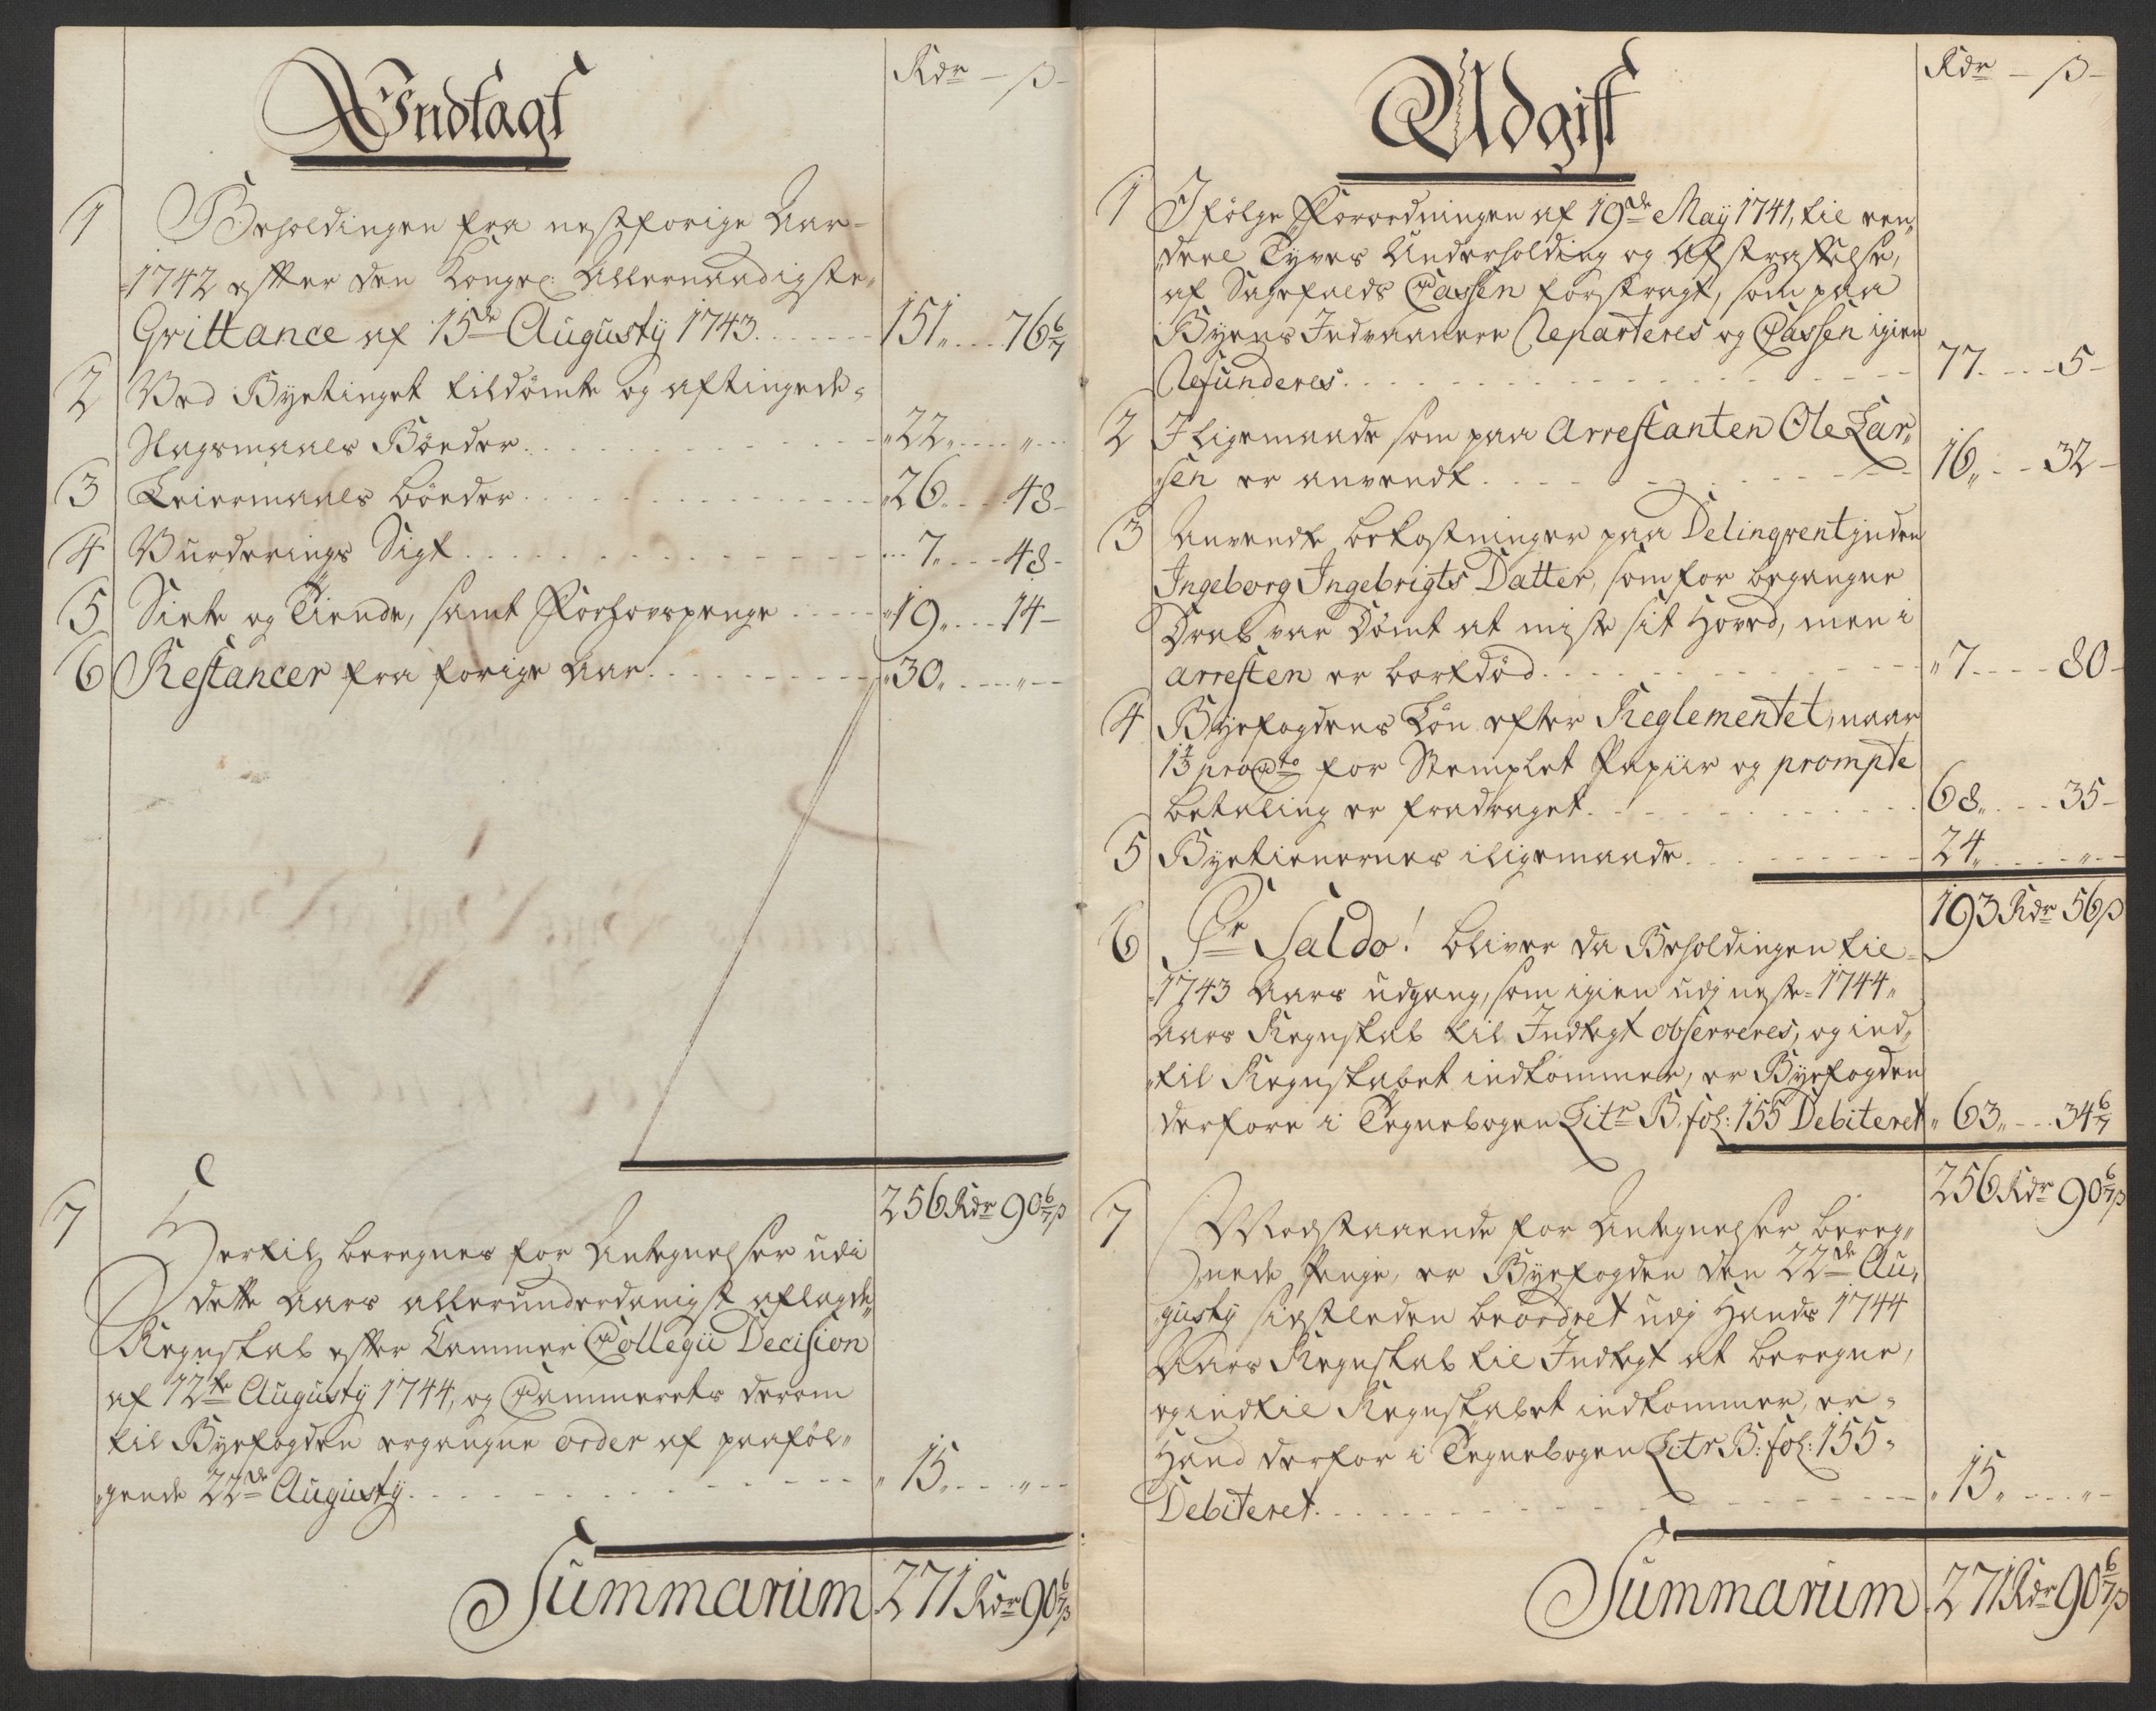 Indtagt
Rdr — ß —
1 Beholdingen fra nestforige Aar
1742 efter den Kongel: Allernaadigste
Qvittance af 15de Augusty 1743 151 76 6/7
2 Ved Byetinget tildömte og aftingede
Sagsmaals Böeder 22 "
3 Leiermaals böeder 26 48
4 Vurderings Sigt 7 48
5 Siette og Tiende, samt Forlovspenge 19 14
6 Restancer fra forige Aar 30 "
256 Rdr 90 6/7 ß
7 Hertil beregnes for Antegnelser udi
dette Aars allerunderdanigst aflagde
Regnskab efter Cammer Collegii Decision
af 12te Augusty 1744, og Cammerets derom
til Byefogden ergangne order af paaföl„
„gende 22de Augusty 15 "
Summarum 271 Rdr 90 6/7 ß
Udgift
Rdr — ß —
1 Ifölge Forordningen af 19de May 1741, til een„
„deel Tyves Underholding og Afstraffelse,
af Sagefalds Cassen forstragt, som paa
Byens Indvaanere Reparteres og Cassen igien
Refunderes 77 5
2 I ligemaade som paa Arrestanten Ole Lar„
„sen er anvendt 16 32
3 Anvendte bekostninger paa Delinqventinden
Ingeborg Ingebrigts Datter, som for begangne
Drab var Dömt at miste sit Hoved, men i
arresten er bortdöd 7 80
4 Byefogdens Lön efter Reglementet, naar
1 1/3 pro Cto for Stemplet Papiir og prompte
betaling er fradraget 68 35
5 Byetienernes iligemaade 24 "
193 Rdr 56 ß
6 Pr Saldo! bliver da Beholdingen til
1743 Aars udgang, som igien udj neste 1744
Aars Regnskab til Indtegt observeres, og ind„
„til Regnskabet indkommer, er Byefogden
derfore i Tegnebogen Litr B. fol: 155 Debiteret 63 34 6/7
256 Rdr 90 6/7 ß
7 Modstaaende for Antegnelser bereg„
„nede Penge, er Byefogden den 22de Au„
„gusty sidstleden beordret udj Hands 1744
Aars Regnskab til Indtegt at beregne,
og indtil Regnskabet indkommer, er
Hand derfor i Tegnebogen Litr B: fol: 155
Debiteret 15 "
Summarum 271 Rdr 90 6/7 ß